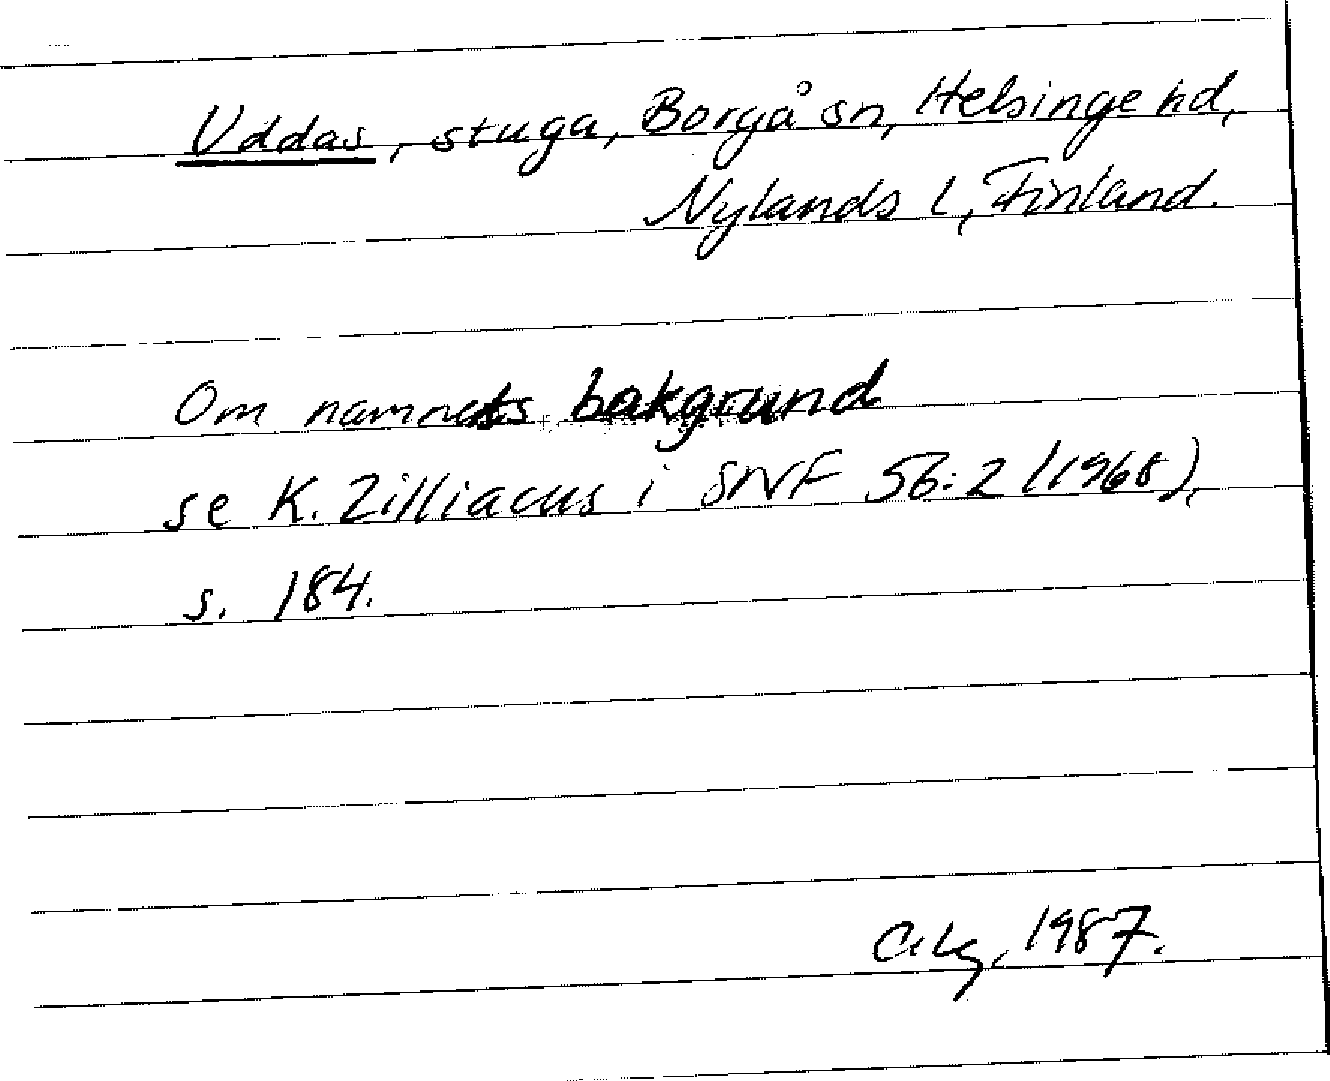 Uddas, stuga, Borgå sn, Helsinge hd,
Nylands l, Finland.
Om namnets bakgrund
se K. Zilliacus i SNF 56:2 (1968),
s. 184.
1987.